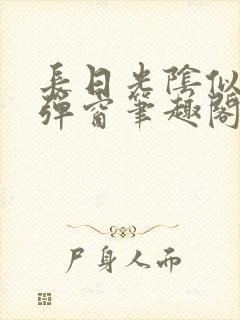 長日光陰似
彈窗筆趣閣
尸身人而